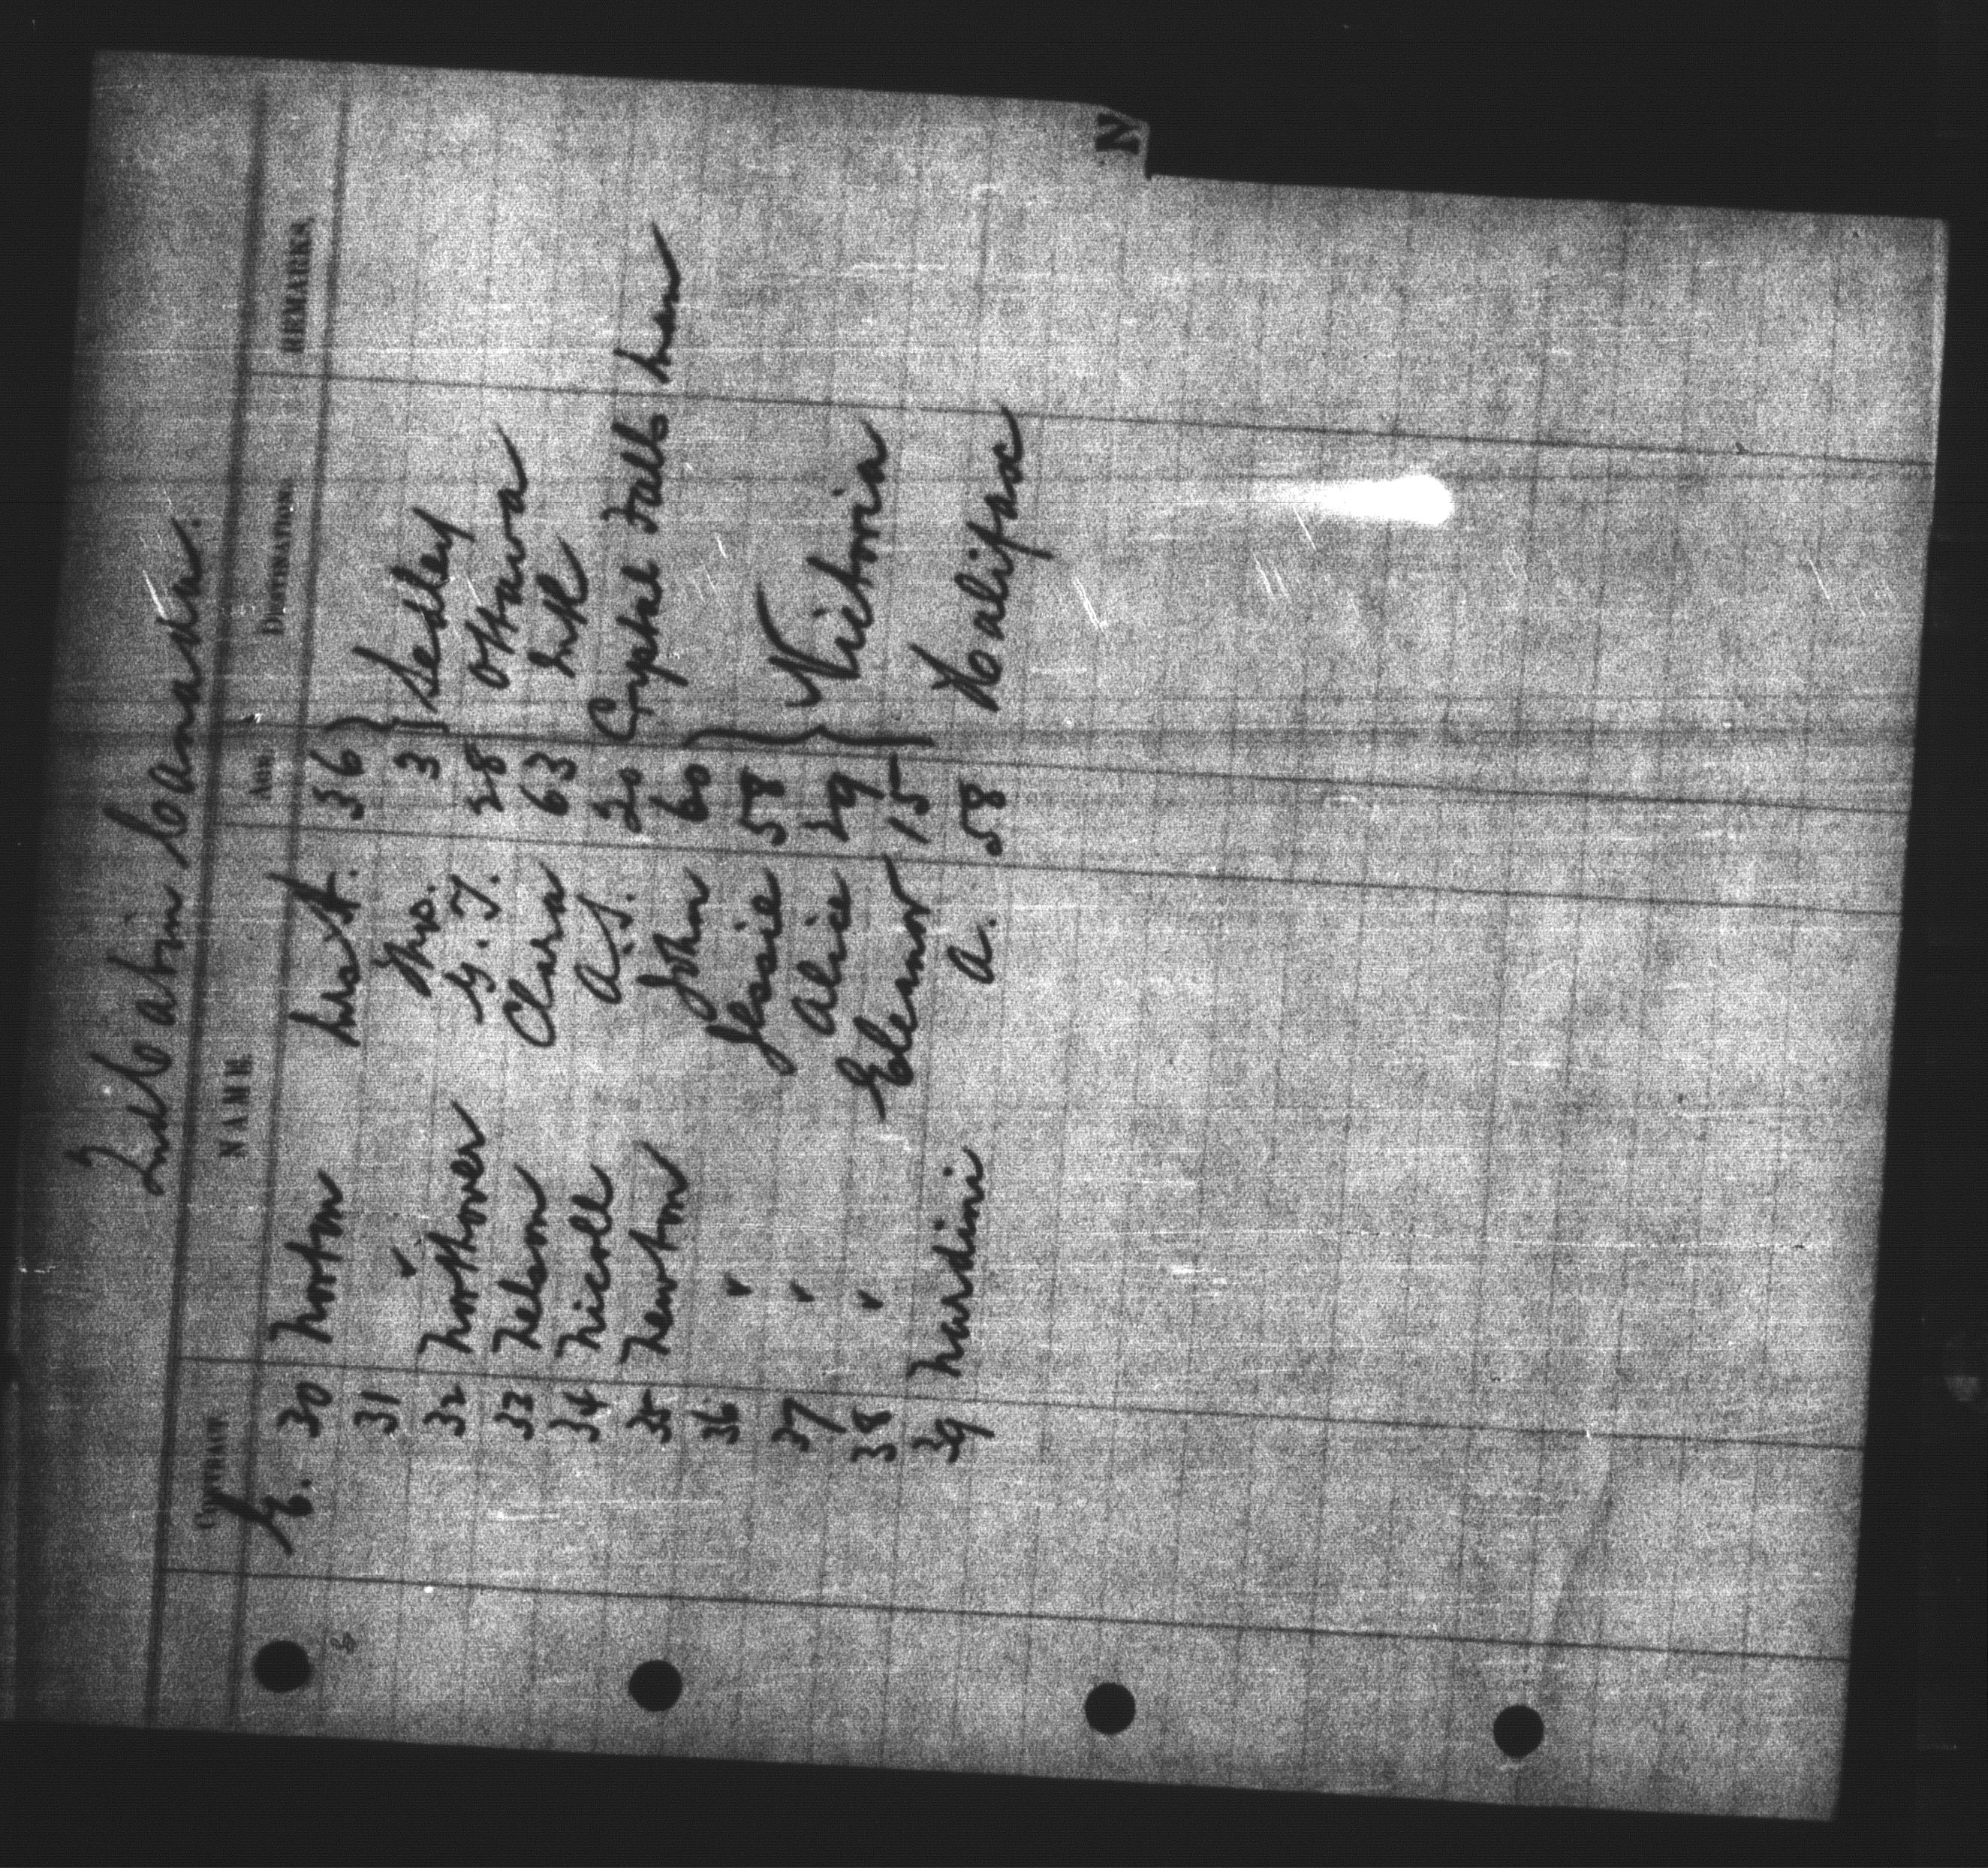 2nd Cabin Canada.
CONTRACT NAME AGE DESTINATION REMARKS
G. 30 Norton Mrs A. 36 }
31 " Thos. 3 } Sedley
32 Northover G. T. 28 Ottawa
33 Nelson Clara 63 Mtl
34 Nicoll A. S. 20 Crystal Falls Man
35 Newton John 60 }
36 " Jessie 58
37 " Alice 29 } Victoria
38 " Eleanor 15
39 Nardini A. 58 Halifax
N